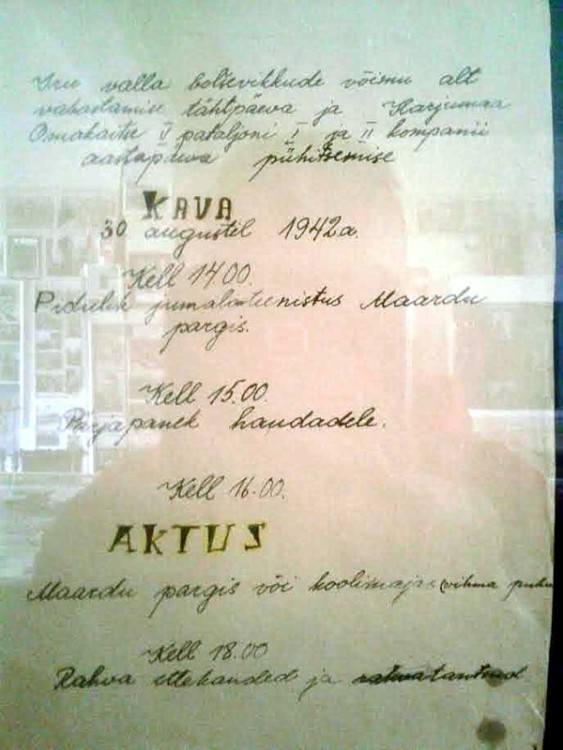 Iru valla bolševikkude võimu alt
vabastamise tähtpäeva ja Harjumaa
Omakaitse V pataljoni I ja II kompanii
aastapäeva pühitsemise
KAVA
30 augustil 1942a.
Kell 14.00.
Pidulik jumalateenistus Maardu
pargis.
Kell 15.00.
Pärjapanek haudadele.
Kell 16.00.
AKTUS
Maardu pargis või koolimajas (vihma puhul
Kell 18.00
Rahva ettekanded ja rahvatantsud